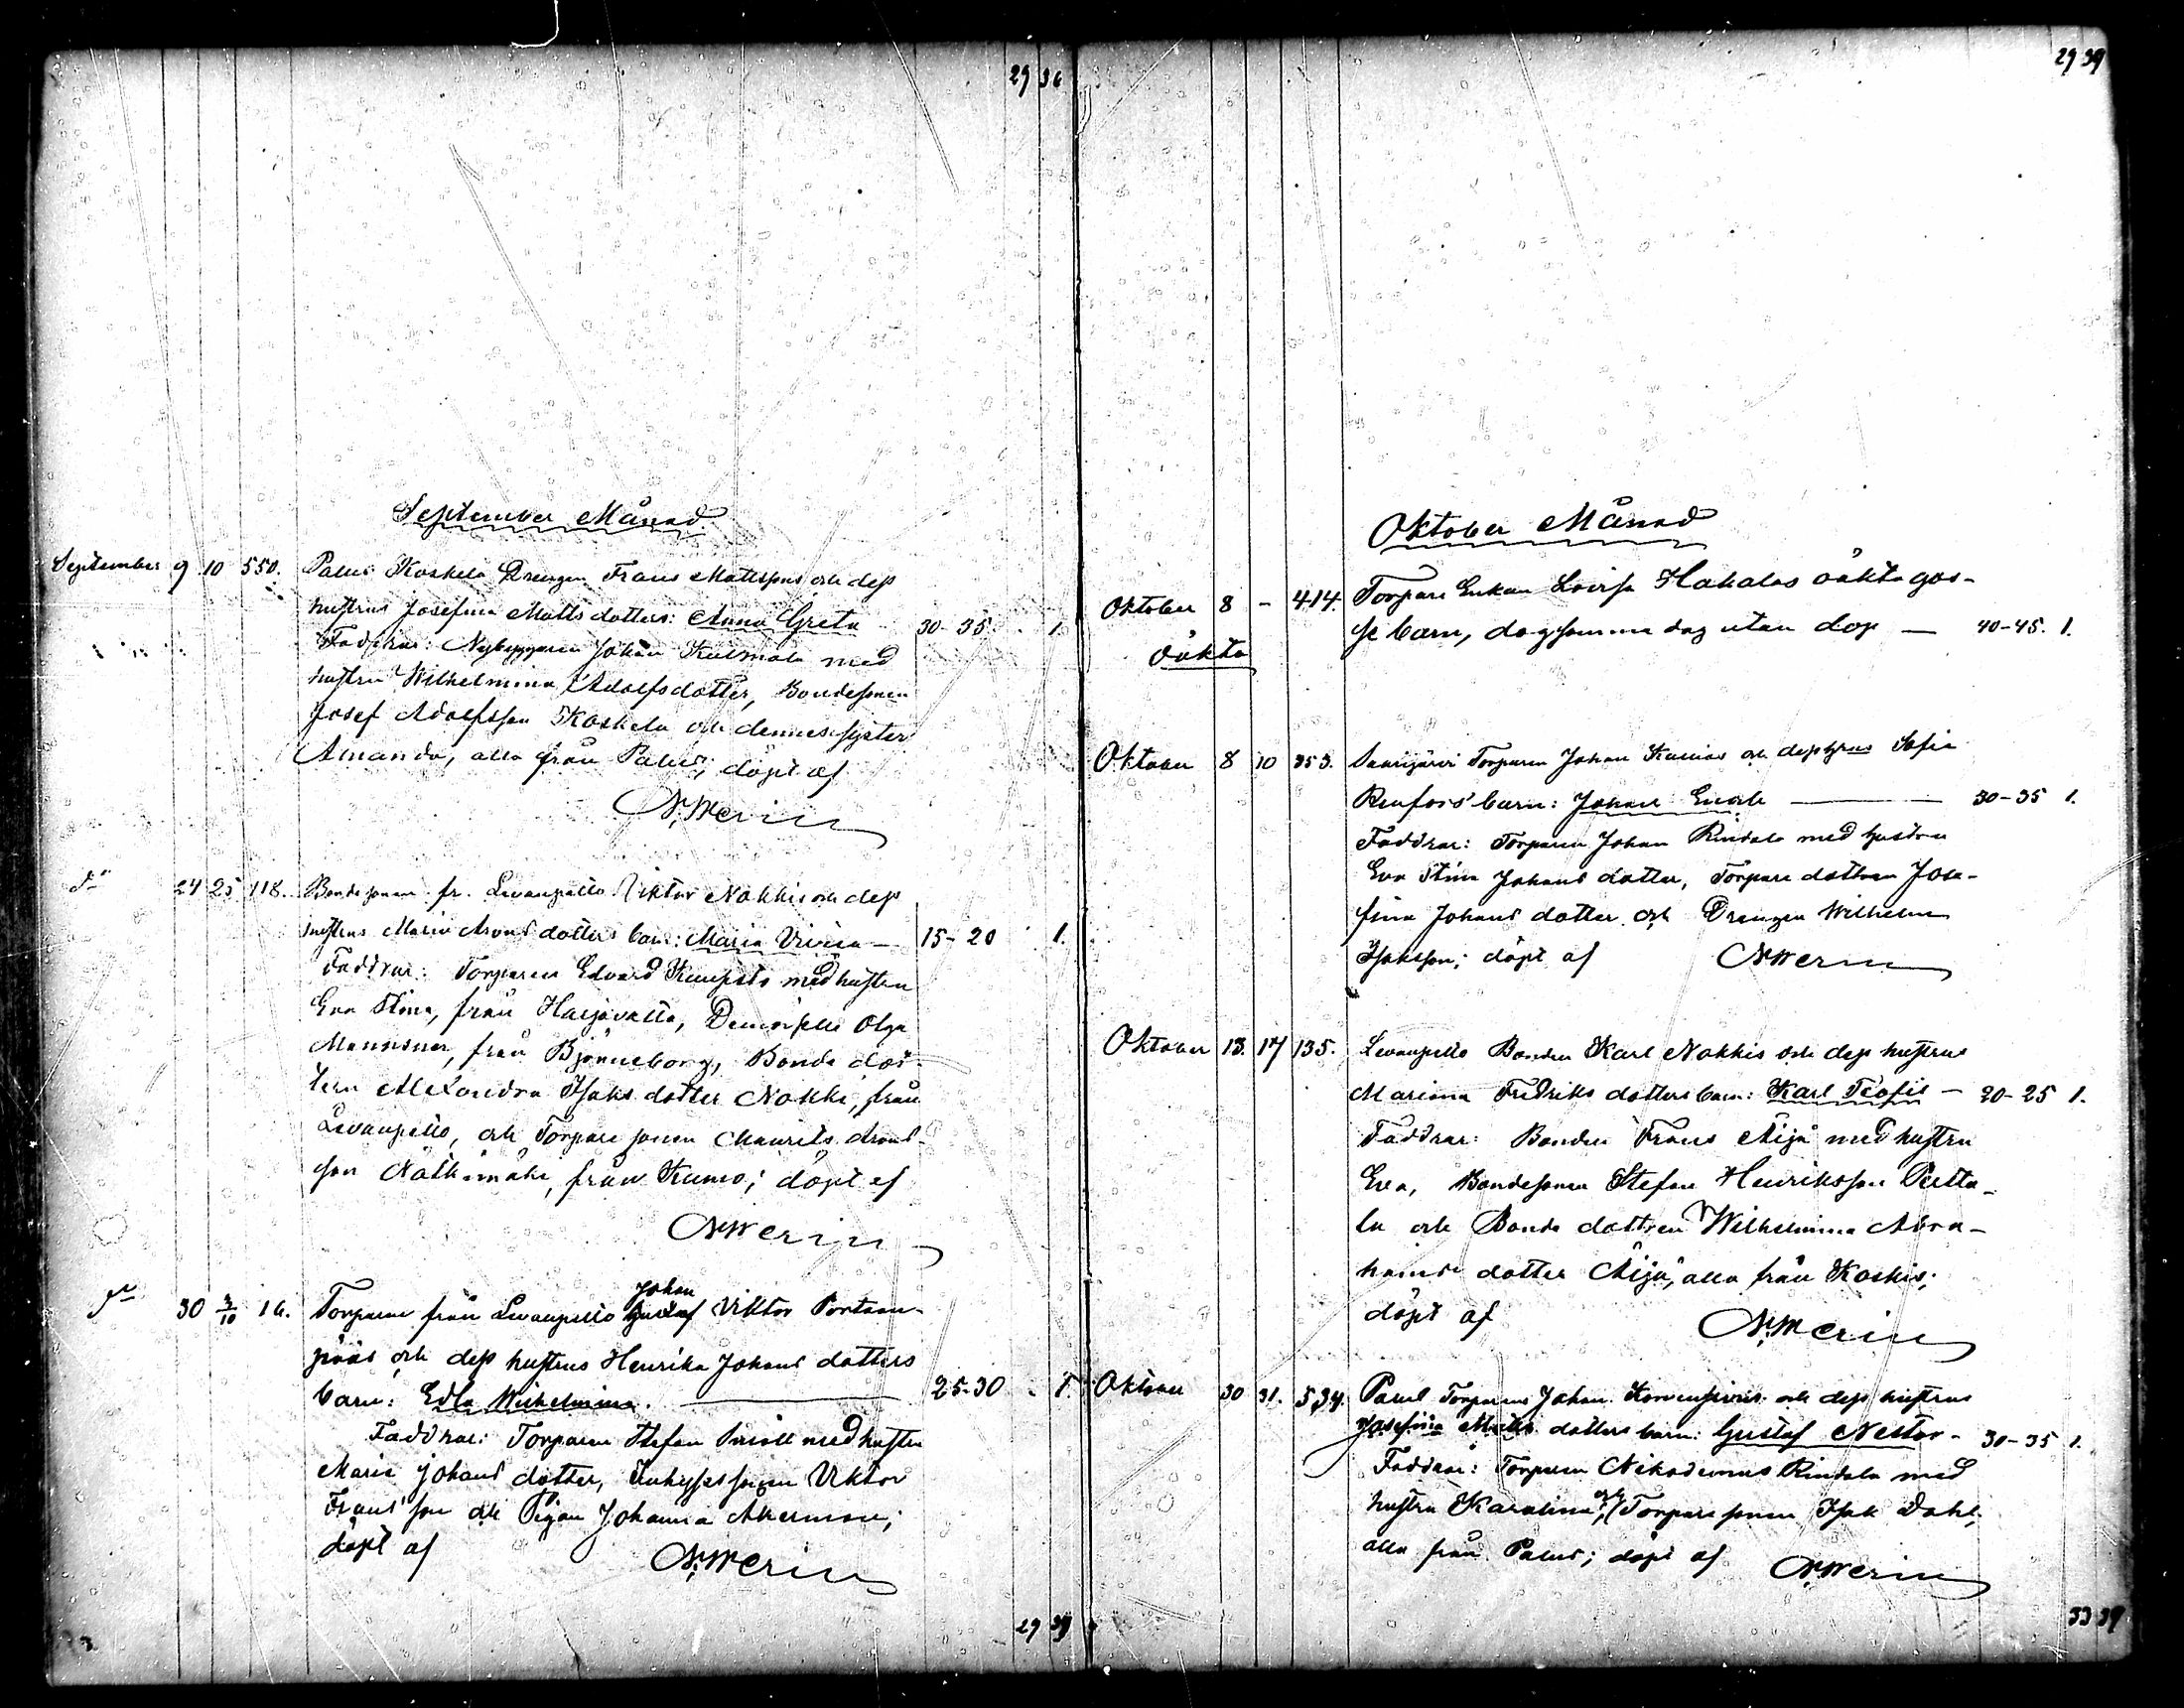 29 36
September Månad
September 9 10 550. Palus Koskela Drengen Frans Mattssons och dess
hustrus Josefina Matts dotters: Anna Greta 30-35. 1.
Faddrar: Nybyggaren Johan Kulmala med
hustru Wilhelmina Adolfsdotter, Bondesonen
Josef Adolfsson Koskela och dennes syster
Amanda, alla från Palus; döpt af
N. Merin
Dº 24 25 118. Bondesonen fr. Levanpelto Viktor Nakkis och dess
hustrus Maria Arons dotters barn: Maria — 15-20 1.
Faddrar: Torparen Edvard med hustru
Eva Stina, från Harjavalta, Demoiselle Olga
från Björneborg, Bonde dot-
tern Alexandra Isaks dotter Nakki, från
Levanpelto, och Torpare sonen Maurits Arons-
son från Kumo; döpt af
N. Merin
Dº 30 3/10 16. Torparen från Levanpelto Gustaf Johan Viktor
och dess hustrus Henrika Johans dotters
barn: Edla Wilhelmina. — 25-30 1.
Faddrar: Torparen Stefan med hustru
Maria Johans dotter, Inhyses sonen Viktor
Frans' son och Pigan Johanna Akerman;
döpt af N. Merin
29 39
29 39
Oktober Månad
Oktober 8 - 414. Torpare Enkan Lovisa Hakalas oäkta gos-
se barn, dog samma dag utan dop — 40-45. 1.
oäkta
Oktober 8 10 353. Saarijärvi Torparen Johan och dess hstrus Sofia
Renfors' barn: Johan — 30-35 1.
Faddrar: Torparen Johan Rindala med hustru
Eva Stina Johans dotter, Torpare dottren Jose-
fina Johans dotter och Drengen Wilhelm
Isaksson; döpt af N. Merin
Oktober 13. 17 135. Levanpelto Bonden Karl Nakkis och dess hustrus
Mariana Fredriks dotters barn: Karl Teofil — 20-25 1.
Faddrar: Bonden Frans Äijä med hustru
Eva, Bondesonen Stefan Henriksson Pertto-
la och Bonde dottren Wilhelmina Abra-
hams dotter Äijä, alla från Koskis;
döpt af N. Merin
Oktober 30 31. 534. Palus Torparens Johan och dess hustrus
Josefina Matts dotters barn: Gustaf Nestor - 30-35 1.
Faddrar: Torparen Nikodemus Rindala med
hustru Karolina, och Torpare sonen Isak Dahl,
alla från Palus; döpt af N. Merin
33 39